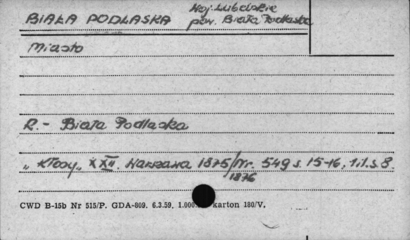 BIAŁA PODLASKA Woj. Lubelskie
pow. Biała Podlaska
Miasto
R.- Biała Podlaska
"Kłosy" XXII. Warszawa 1875/ Nr. 549 s. 15-16, 1 il. s 8.
1876
CWD B-15b Nr 515/P. GDA-809. 6.3.59. 1.000 karton 180/V.